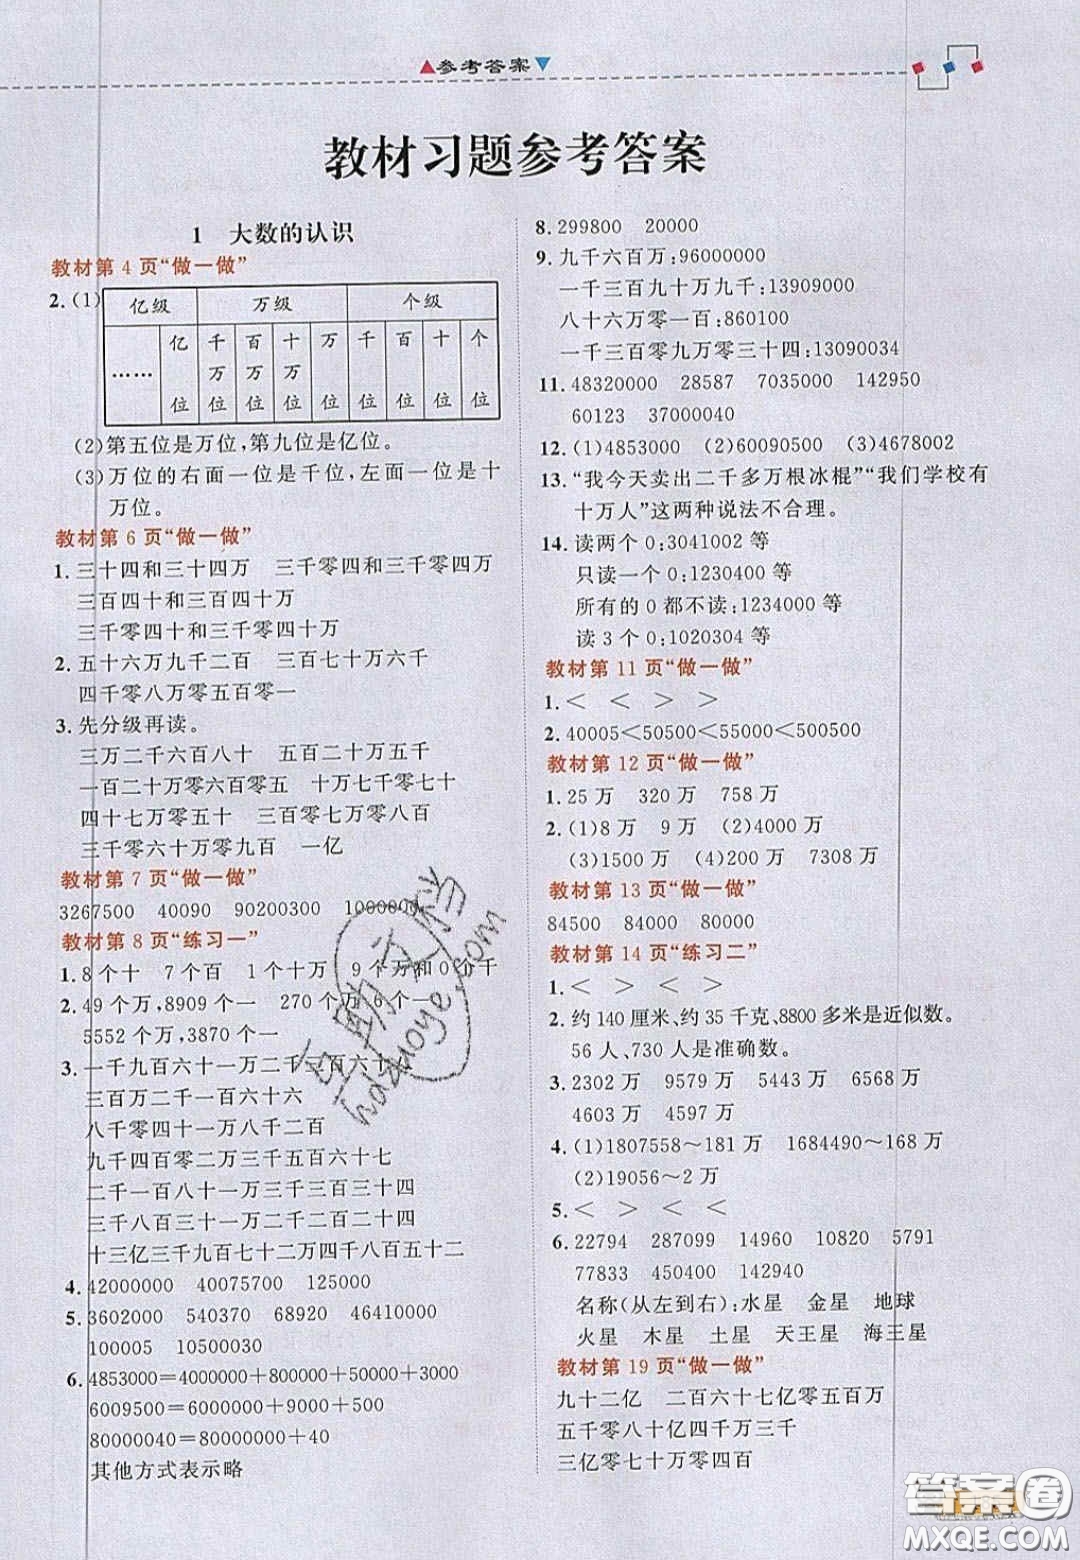 参考答案
教材习题参考答案
1 大数的认识
教材第4页“做一做”
2.(1)
亿级 万级 个级
…… 亿位 千万位 百万位 十万位 万位 千位 百位 十位 个位
(2)第五位是万位,第九位是亿位。
(3)万位的右面一位是千位,左面一位是十
万位。
教材第6页“做一做”
1.三十四和三十四万 三千零四和三千零四万
三百四十和三百四十万
三千零四十和三千零四十万
2.五十六万九千二百 三百七十万六千
四千零八万零五百零一
3.先分级再读。
三万二千六百八十 五百二十万五千
一百二十万零六百零五 十万七千零七十
四十七万零五十 三百零七万零八百
三千零六十万零九百 一亿
教材第7页“做一做”
3267500 40090 90200300 1000000
教材第8页“练习一”
1.8个十 7个百 1个十万 9个万和0个千
2.49个万,8909个一 270个万,6个一
5552个万,3870个一
3.一千九百六十一万二千三百六十
三百万二千一百六十六
八千零四十一万八千二百
九千四百零二万三千五百六十七
二千一百八十一万三千三百三十四
三千八百三十万零二百二十四
十三亿三千九百七十二万四千八百五十二
4.42000000 40075700 125000
5.3602000 540370 68920 46410000
100005 10500030
6.4853000=4000000+800000+50000+3000
6009500=6000000+9000+500
80000040=80000000+40
其他方式表示略
8.299800 20000
9.九千六百万:96000000
一千三百九十万九千:13909000
八十六万零一百:860100
一千三百零九万零三十四:13090034
11.48320000 28587 7035000 142950
60123 37000000
12.(1)4853000 (2)60090500 (3)4678002
13.“我今天卖出二千多万根冰棍”“我们学校有
十万人”这两种说法不合理。
14.读两个0:3041002等
只读一个0:1230400等
所有的0都不读:1234000等
读3个0:1020304等
教材第11页“做一做”
1.< < > >
2.40005<50500<55000<500500
教材第12页“做一做”
1.25万 320万 758万
2.(1)8万 9万 (2)4000万
(3)1500万 (4)200万 7308万
教材第13页“做一做”
84500 84000 80000
教材第14页“练习二”
1.< > < >
2.约140厘米、约35千克、8800多米是近似数。
56人、730人是准确数。
3.2302万 9579万 5443万 6568万
4603万 4597万
4.(1)1807558～181万 1684490～168万
(2)19056～2万
5.< > < <
6.22794 287099 14960 10820 5791
77833 450400 142940
名称(从左到右):水星 金星 地球
火星 木星 土星 天王星 海王星
教材第19页“做一做”
九十二亿 二百六十七亿零五百万
五千零八十亿四千万三千
三亿零七十万零四百
互助文档
hdzuoye.com
答案圈
MXQE.COM